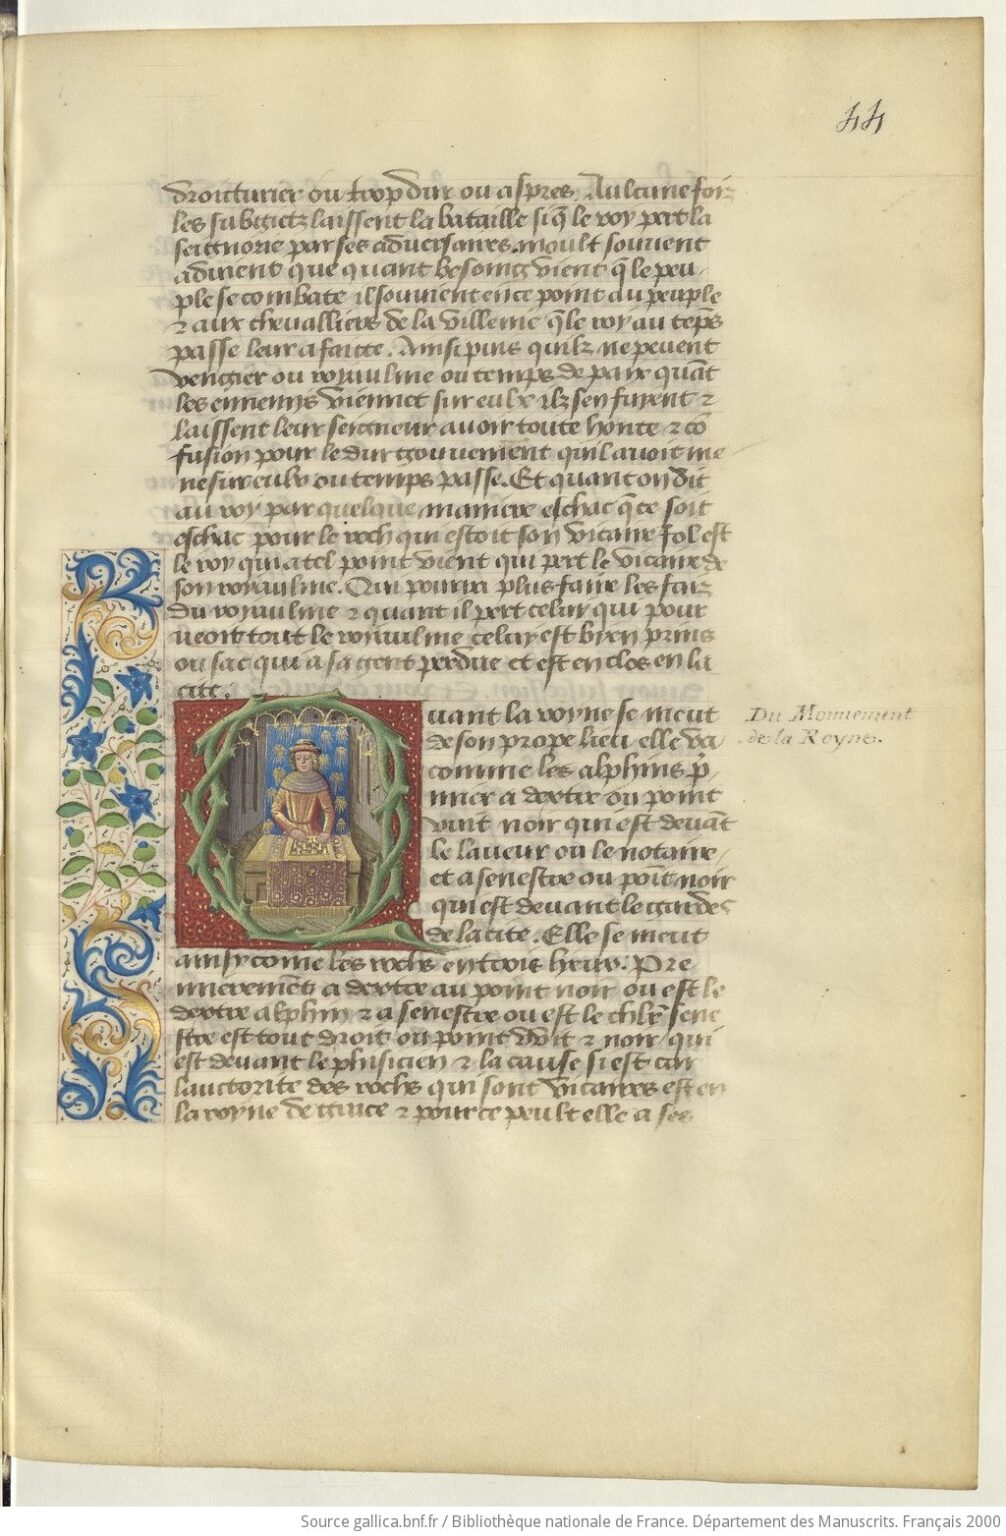 44
droitturier ou trop dur ou aspres. Aulcune foiz
les subgietz laissent la bataille si q̃ le roy pert la
seignorie par ses adversaires. moult souvent
advient que quant besoing vient q̃ le peu-
ple se combate il souvient en ce point au peuple
⁊ aux chevalliers de la villenie q̃ le roy au tẽps
passe leur a faicte. Ainsi puis quilz ne peuent
vengier ou royaulme ou temps de paix quãt
les ennemys viennẽt sur eulx ilz sen fuyent ⁊
laissent leur seigneur avoir toute honte ⁊ cõ
fusion pour le dur gouvernement quil avoit me
ne sur eulx ou temps passe. Et quant on dit
au roy par quelque maniere eschac q̃ ce soit
eschac pour le roch qui estoit son vicaire fol est
le roy qui a tel point vient qui pert le vicaire de
son royaulme. Qui pourra plus faire les faiz
du royaulme ⁊ quant il pert celui qui pour
veoit tout le royaulme celuy est byen prins
ou sac qui a sa gent perdue et est enclos en la
cite.
Quant la royne se meut
de son prope lieu elle va
comme les alphins p̃
mier a dextre ou point
vuit noir qui est devãt
le laveur ou le notaire
et a senestre ou poĩt noir
qui est devant le gardes
de la cite. Elle se meut
Du Mouuement
de la Reyne.
ainsy come les rochs en trois lieux. Pre
mieremẽt a dextre au point noir ou est le
dextre alphin ⁊ a senestre ou est le chl̃r sene
stre est tout droit ou point vuit ⁊ noir qui
est devant le phisicien ⁊ la cause si est car
lauctorite des rochs qui sont vicaires est en
la royne de grace ⁊ pour ce peult elle a ses
Source gallica.bnf.fr / Bibliothèque nationale de France. Département des Manuscrits. Français 2000